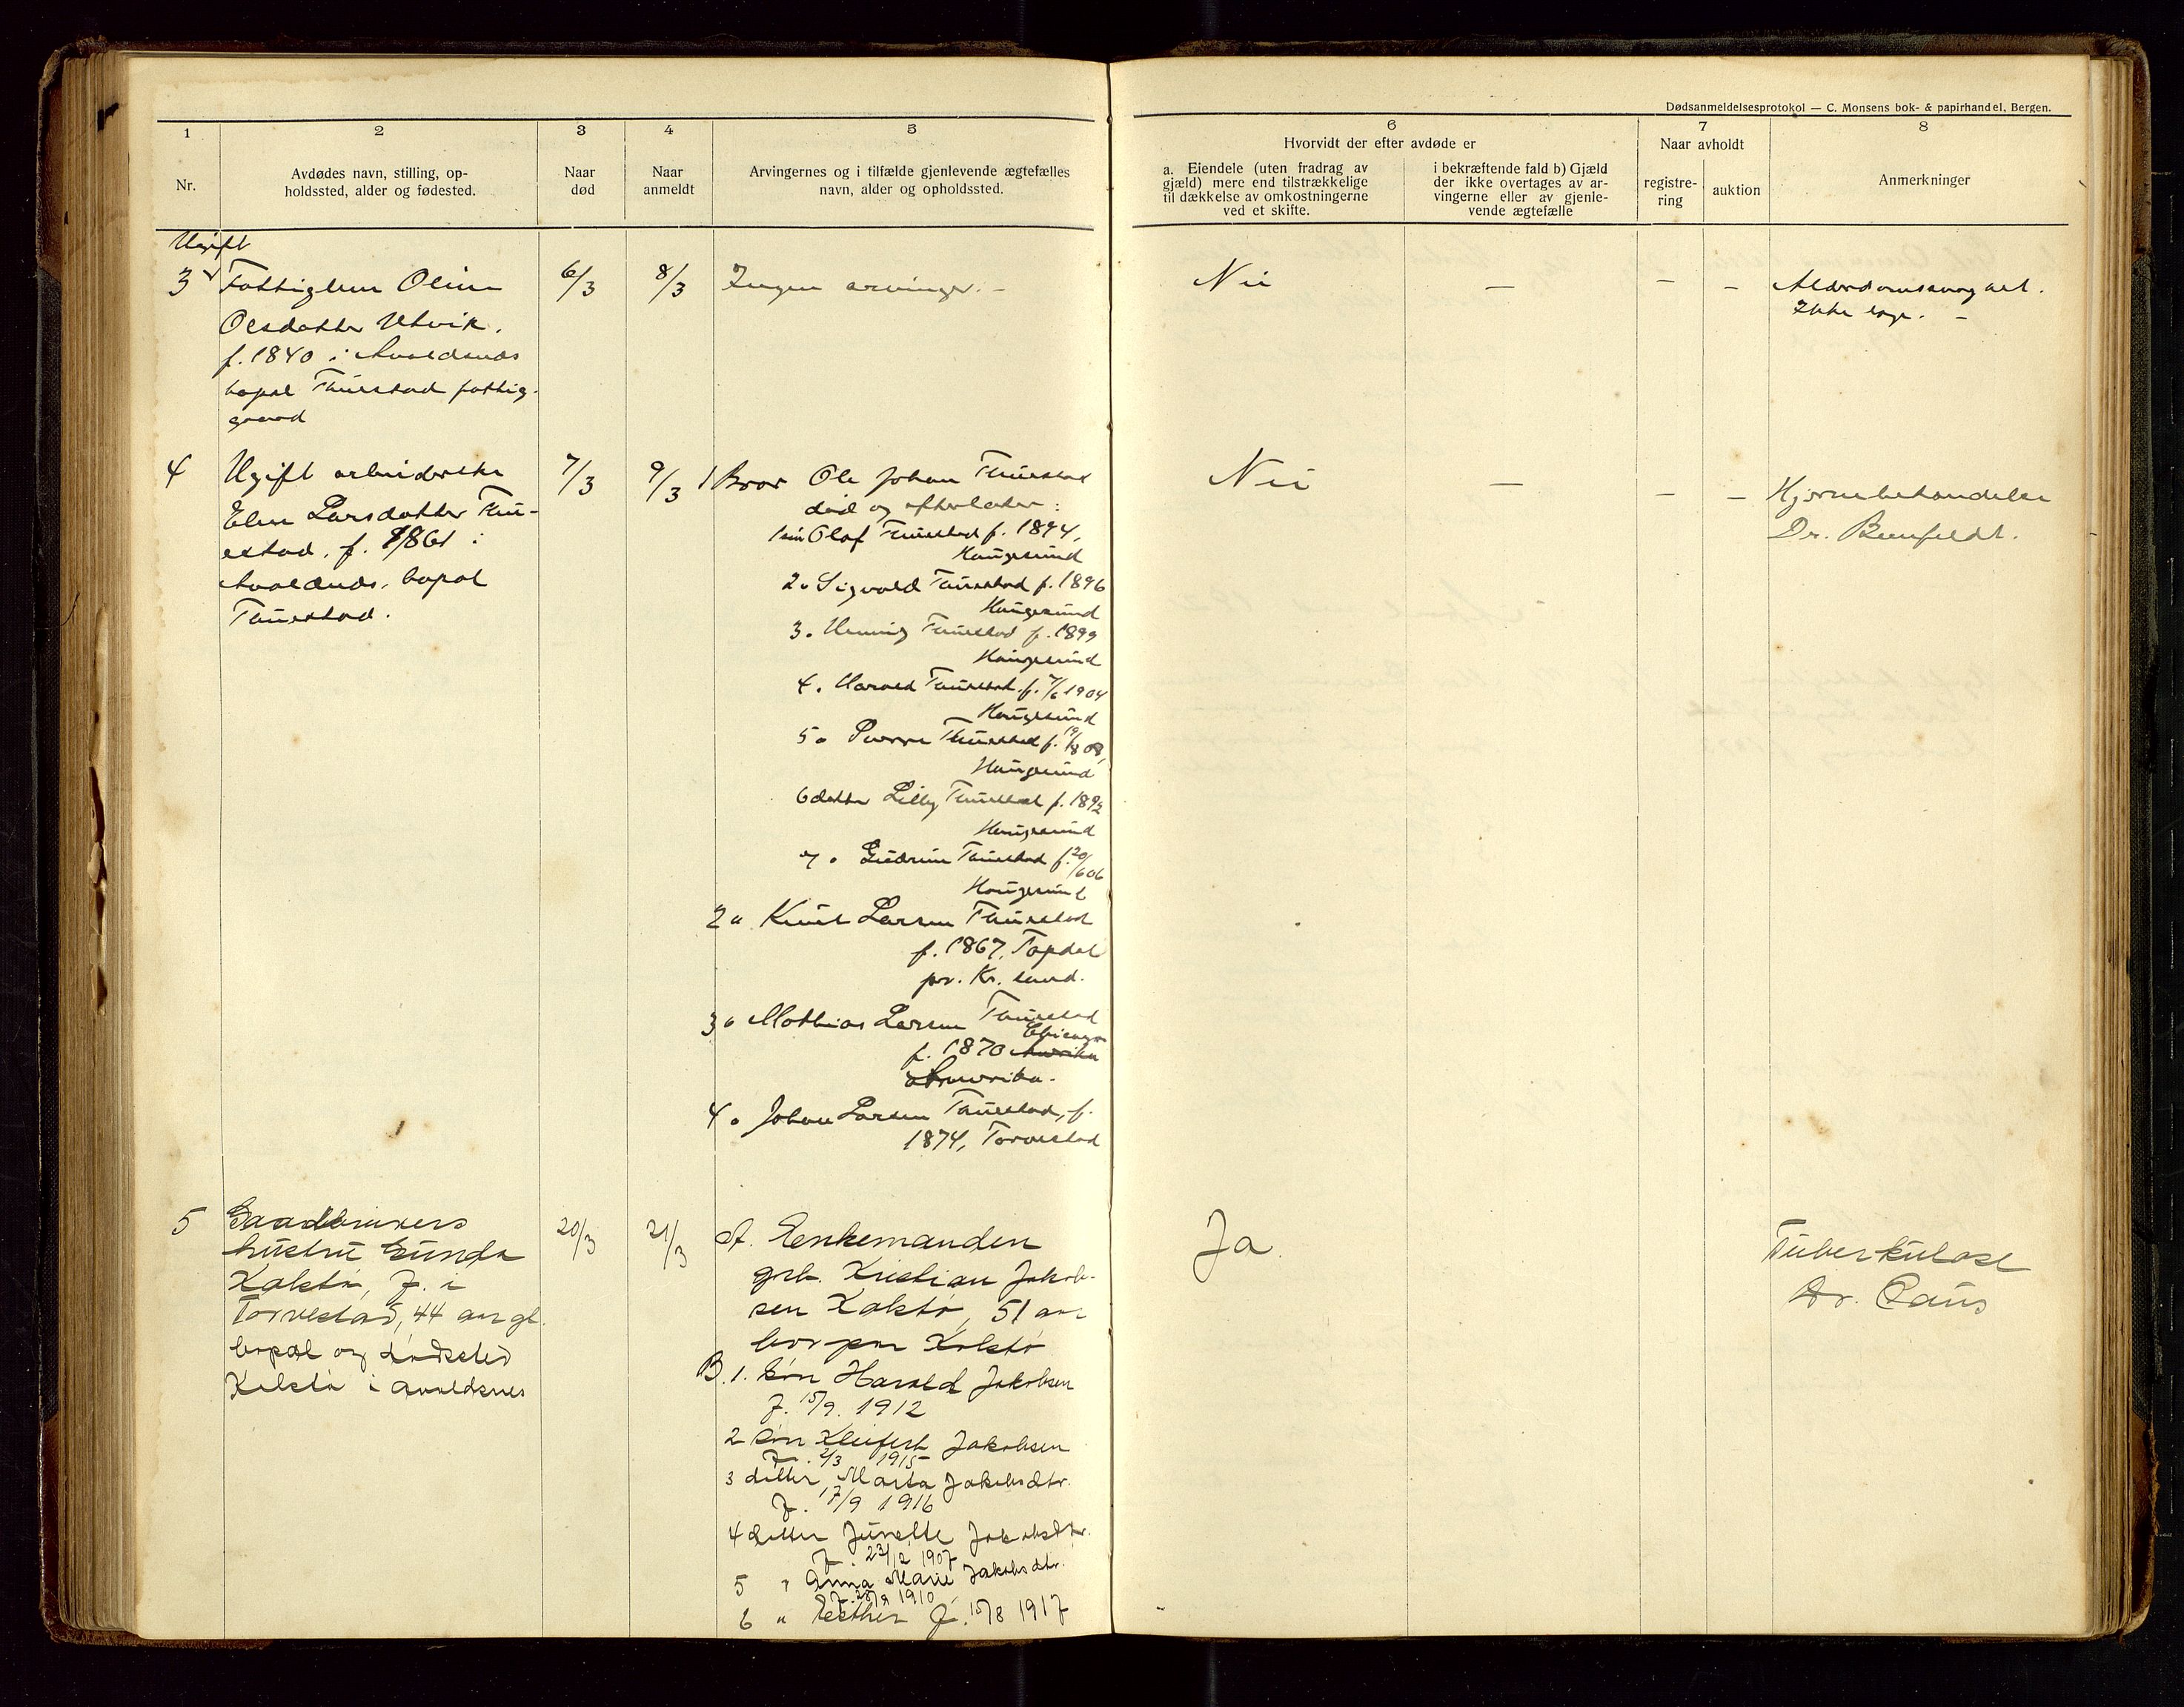 Dødsanmeldelsesprotokol — C. Monsens bok- & papirhandel, Bergen.
1
2
3
4
5
6
7
8
Nr.
Avdødes navn, stilling, op-
holdssted, alder og fødested.
Naar
død
Naar
anmeldt
Arvingernes og i tilfælde gjenlevende ægtefælles
navn, alder og opholdssted.
Hvorvidt der efter avdøde er
a. Eiendele (uten fradrag av
gjæld) mere end tilstrækkelige
til dækkelse av omkostningerne
ved et skifte.
i bekræftende fald b) Gjæld
der ikke overtages av ar-
vingerne eller av gjenle-
vende ægtefælle
Naar avholdt
registre-
ring
auktion
Anmerkninger
Ugift
3 Fattiglem Oline 6/3 8/3 Ingen arvinger. – Nei — – –
Olsdatter Utvik.
f. 1840 i Avaldsnes
bopæl Tuestad fattig-
gaard
Ikke læge. –
4 Ugift arbeiderske 7/3 9/3 1 Bror Ole Johan Tuestad Nei — – –
Elen Larsdatter Tu-
estad. f. 1861 i
Avaldsnes. bopæl
Tuestad.
død og efterlater:
1 søn Olaf Tuestad f. 1894,
Haugesund
2 " Sigvald Tuestad f. 1896
Haugesund
3 " Henning Tuestad f. 1899
Haugesund
4 " Harald Tuestad f. 7/6 1904
Haugesund
5 " Tuestad f. 19/8 08,
Haugesund
6 datter Lilly Tuestad f. 1892
Haugesund
7 " Gudrun Tuestad f. 20/6 06
Haugesund
2 " Knut Larsen Tuestad
f. 1867, Topdal
pr. Kr. sund.
3 " Mathias Larsen Tuestad
Chicago
f. 1870 Amerika
Amerika.
4 " Johan Larsen Tuestad, f.
1874, Torvestad
Dr. Beenfeldt.
5 Gaardbrukers 20/3 21/3 A. Enkemanden Ja.
hustru Gunda
Kalstø, f. i
Torvestad, 44 aar gl.
bopæl og dødssted
Kalstø i Avaldsnes
grb. Kristian Jakob-
sen Kalstø, 51 aar
bor paa Kalstø
B. 1. søn Harald Jakobsen
f. 15/9. 1912
2 søn Jakobsen
f. 2/3 1915
3 datter Marta Jakobsdtr.
f. 17/9 1916
4 datter Junette Jakobsdtr.
f. 23/12 1907
5 " Anna Marie Jakobsdtr.
1910
6 " Esther f. 15/8 1917
Tuberkulose
Dr. Paus